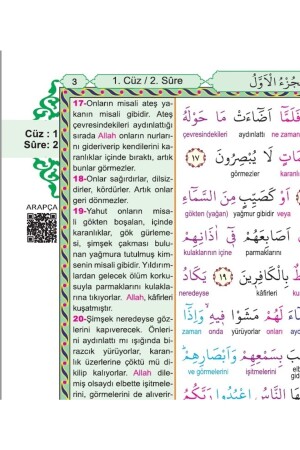 3
1. Cüz / 2. Sûre
جُزْءُ الْاَوَّلُ
Cüz : 1
Sûre: 2
ARAPÇA
17-Onların misali ateş ya-
kanın misali gibidir. Ateş
çevresindekileri aydınlattığı
sırada Allah onların nurları-
nı gideriverip kendilerini ka-
ranlıklar içinde bıraktı, artık
bunlar görmezler.
18-Onlar sağırdırlar, dilsiz-
dirler, kördürler. Artık onlar
geri dönmezler.
19-Yahut onların misa-
li gökten boşalan, içinde
karanlıklar, gök gürleme-
si, şimşek çakması bulu-
nan yağmura tutulmuş kim-
senin misali gibidir. Yıldırım-
lardan gelecek ölüm korku-
suyla parmaklarını kulakla-
rına tıkıyorlar. Allah, kâfirleri
kuşatmıştır.
20-Şimşek neredeyse göz-
lerini kapıverecek. Önleri-
ni aydınlattı mı ışığında bi-
razcık yürüyorlar, karan-
lık üzerlerine çöktü mü di-
kilip kalıyorlar. Allah dile-
miş olsaydı elbette işitmele-
rini, görmelerini de alıverir-
فَلَمَّٓا اَضَٓاءَتْ مَا حَوْلَهُ
çevresindekileri aydınlattı ne zaman
لَا يُبْصِرُونَ ﴿١٧﴾
görmezler karanlıkl
اَوْ كَصَيِّبٍ مِنَ السَّمَٓاءِ
gökten (yağan) yağmur gibidir veya
اَصَابِعَهُمْ فٖٓي اٰذَانِهِمْ
kulaklarının içine parmaklarını
بِالْكَافِرٖينَ ﴿١٩﴾ يَكَادُ
neredeyse kâfirleri
لَهُمْ مَشَوْا فٖيهِ وَاِذَٓا
zaman onda yürüyorlar onları
بِسَمْعِهِمْ وَاَبْصَارِهِمْ
ve görmelerini işitmelerini
النَّاسُ اعْبُدُوا رَبَّكُمُ